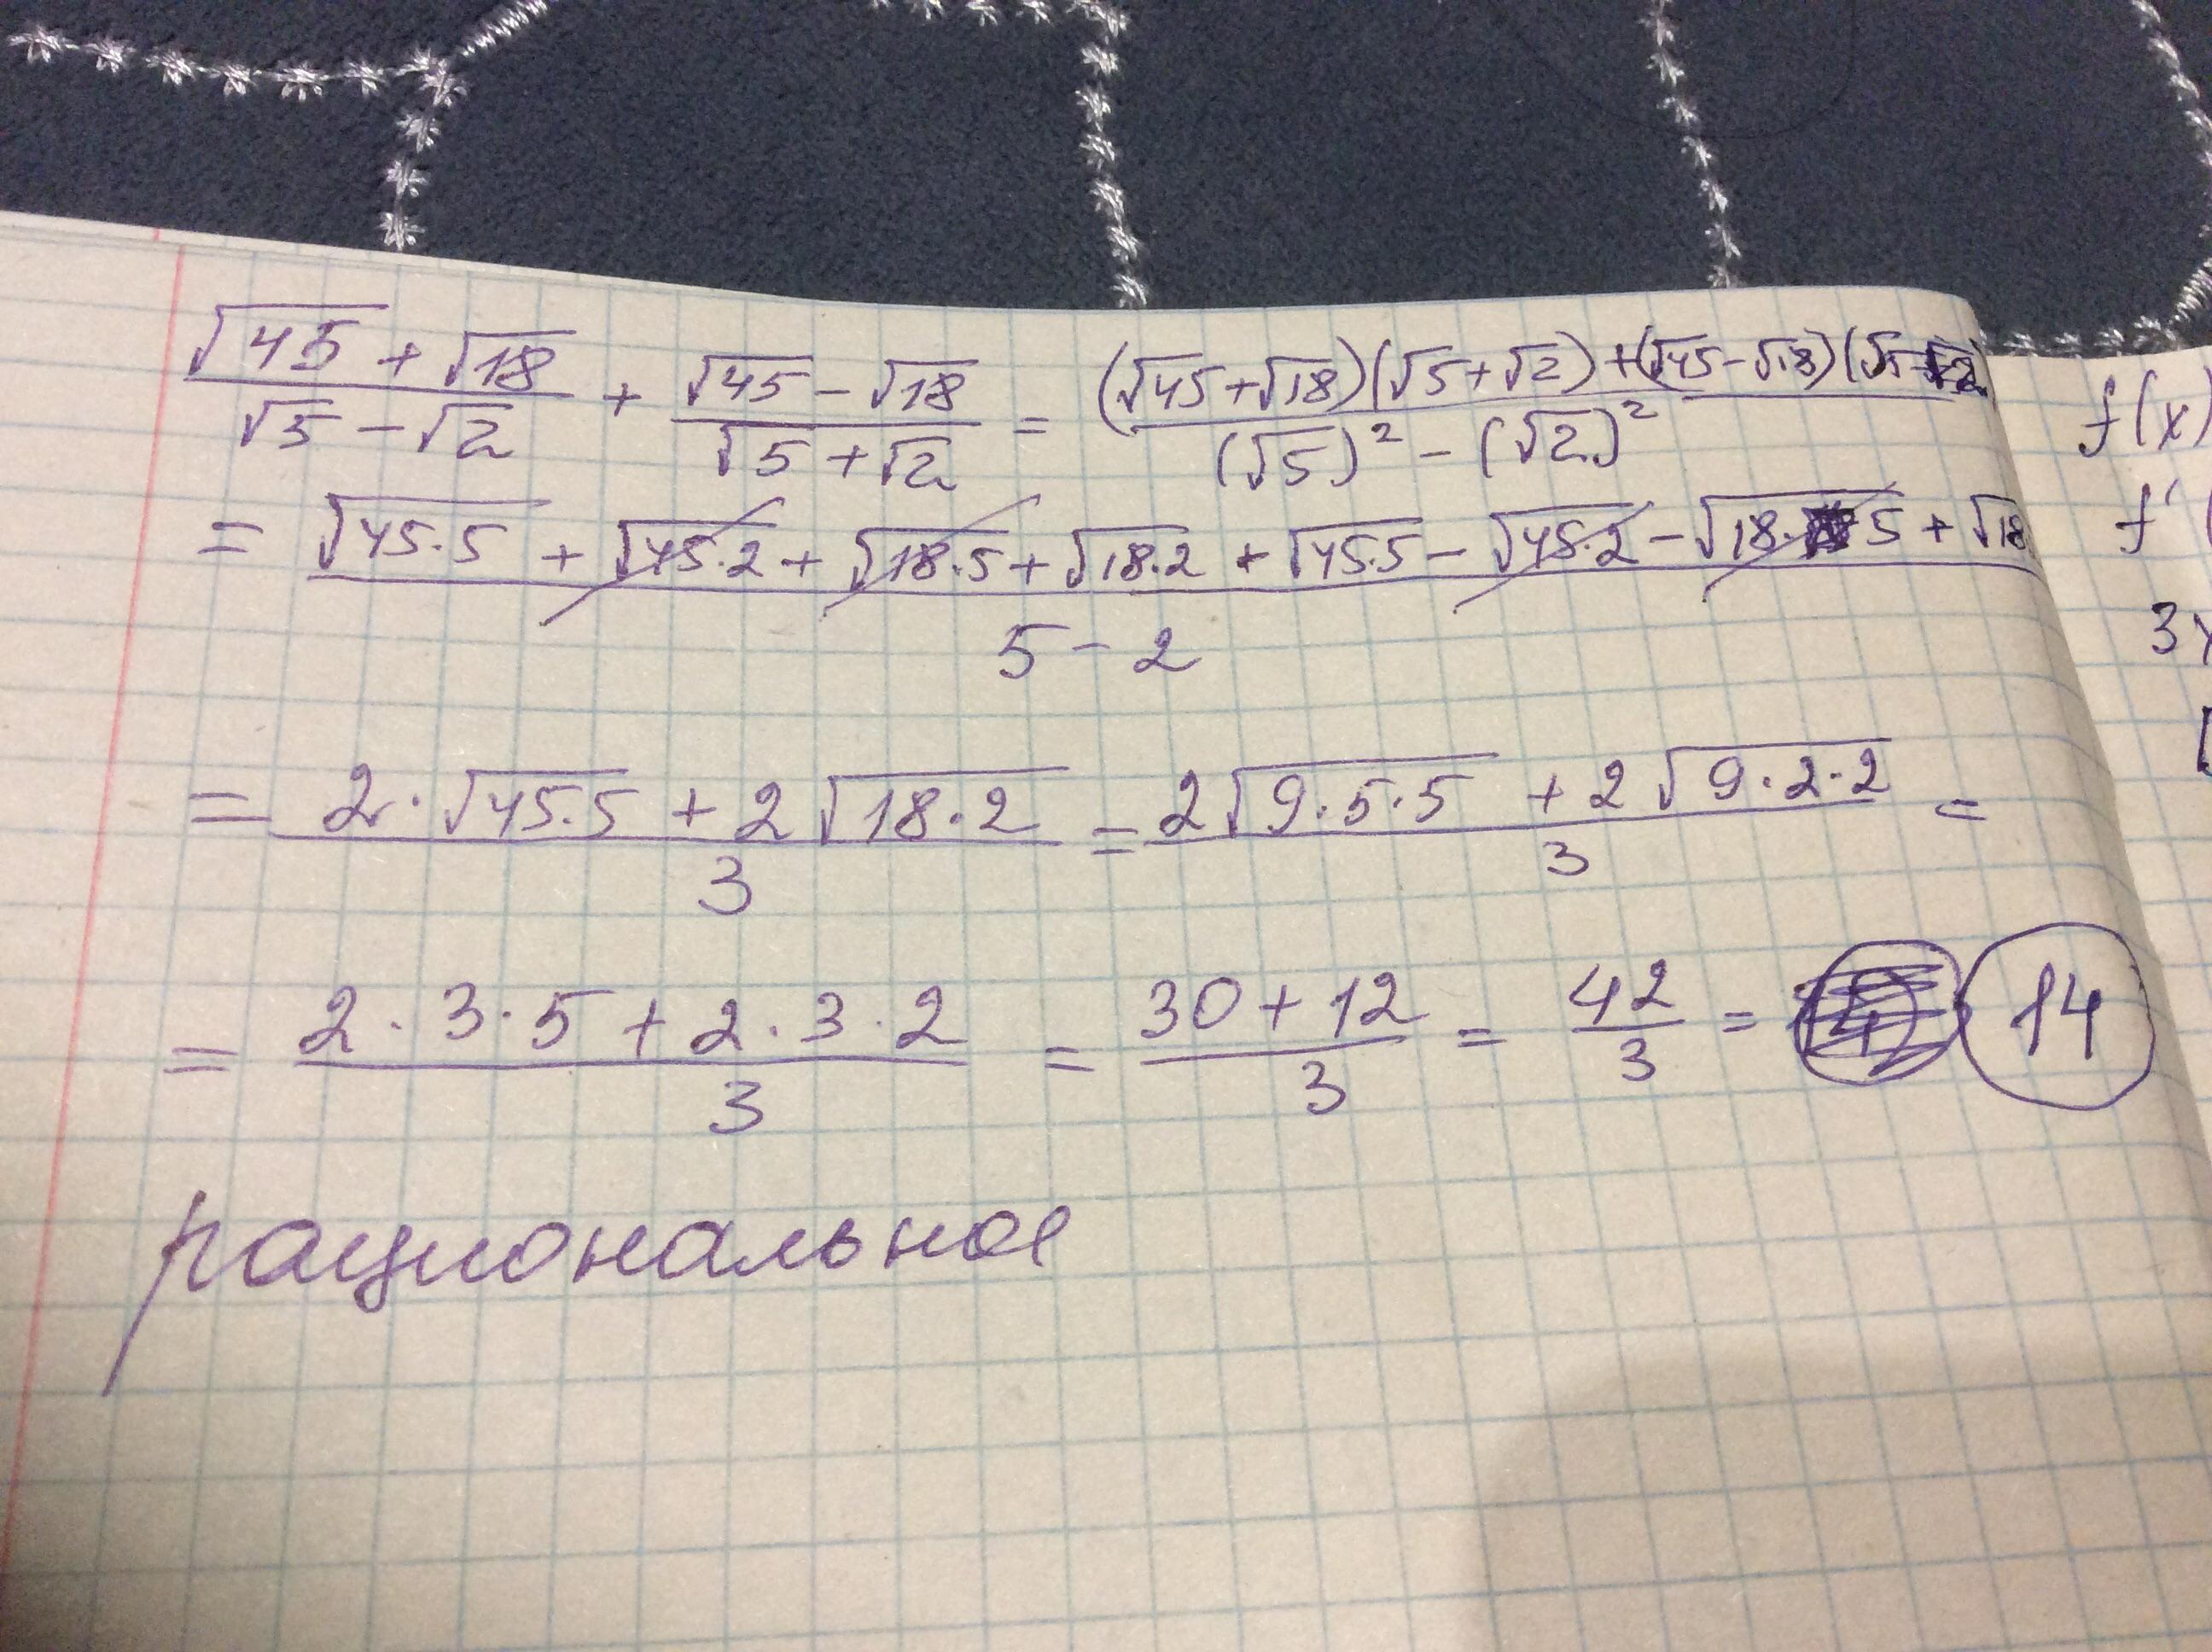 (√45 + √18)/(√5 − √2) + (√45 − √18)/(√5 + √2) = ((√45 + √18)(√5 + √2) + (√45 − √18)(√5 − √2))/((√5)² − (√2)²)
= (√45·5 + √45·2 + √18·5 + √18·2 + √45·5 − √45·2 − √18·5 + √18)/(5 − 2)
= (2·√45·5 + 2√18·2)/3 = (2√9·5·5 + 2√9·2·2)/3 =
= (2·3·5 + 2·3·2)/3 = (30 + 12)/3 = 42/3 = 14
рациональное
f(x)
f'(
3x
[